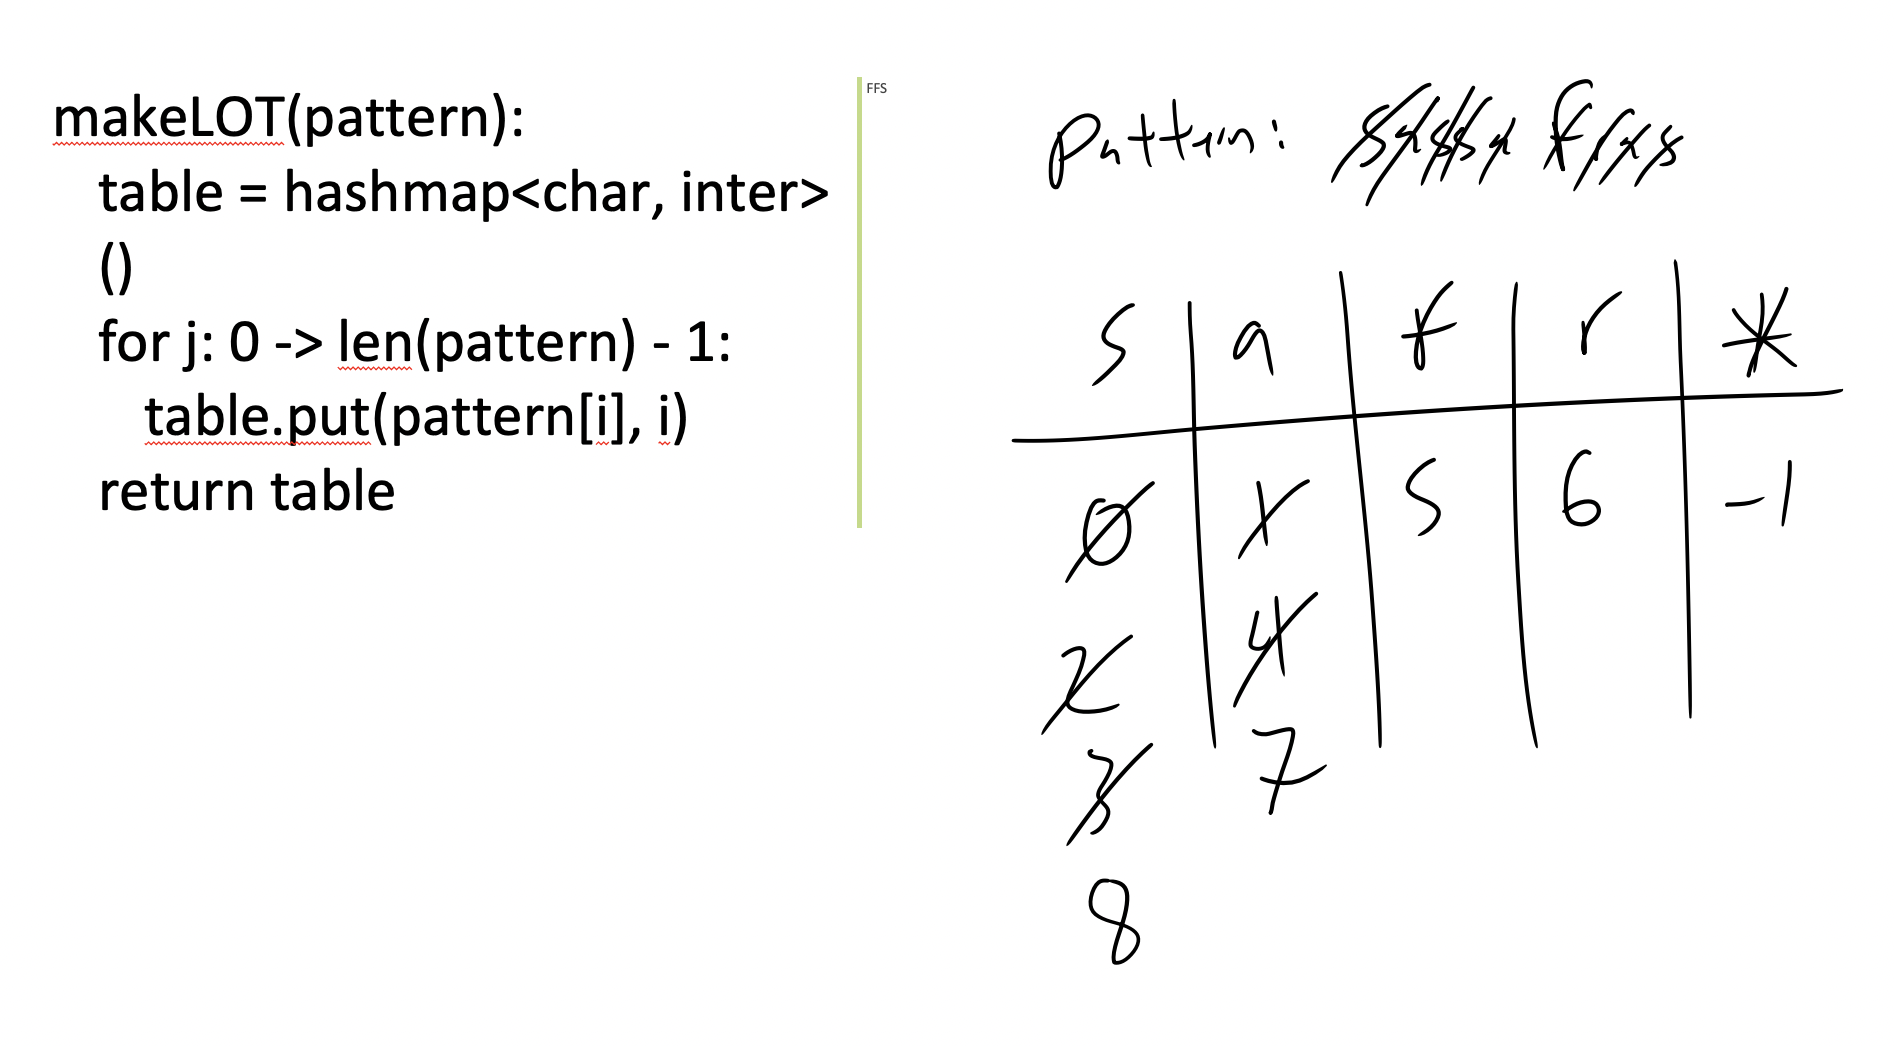 makeLOT(pattern):
table = hashmap<char, inter>
()
for j: 0 -> len(pattern) - 1:
table.put(pattern[i], i)
return table
FFS
pattern: sassafras
s a f r *
0 1 5 6 -1
2 4
3 7
8